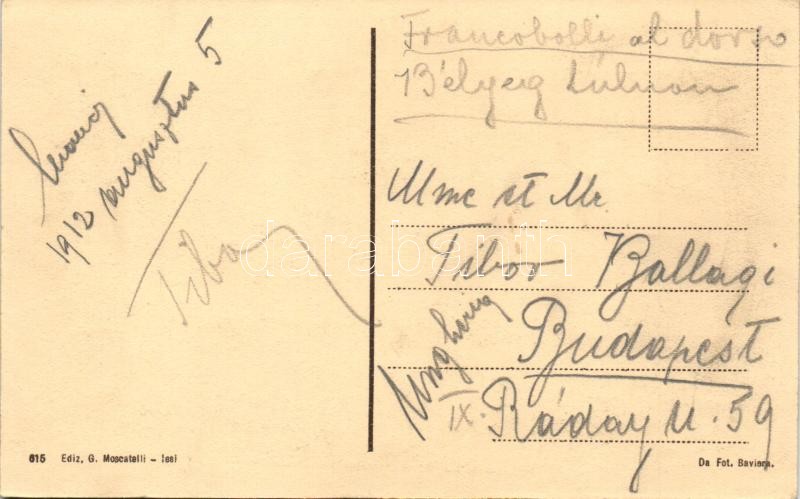 Francobolli al dorso
Bélyeg túlnon
1912 augusztus 5
Tibor
Mme et Mr.
Tibor Ballagi
Budapest
IX. Ráday u. 59
Ungheria
615 Ediz. G. Moscatelli - Iesi
Da Fot. Baviera.
darabanth